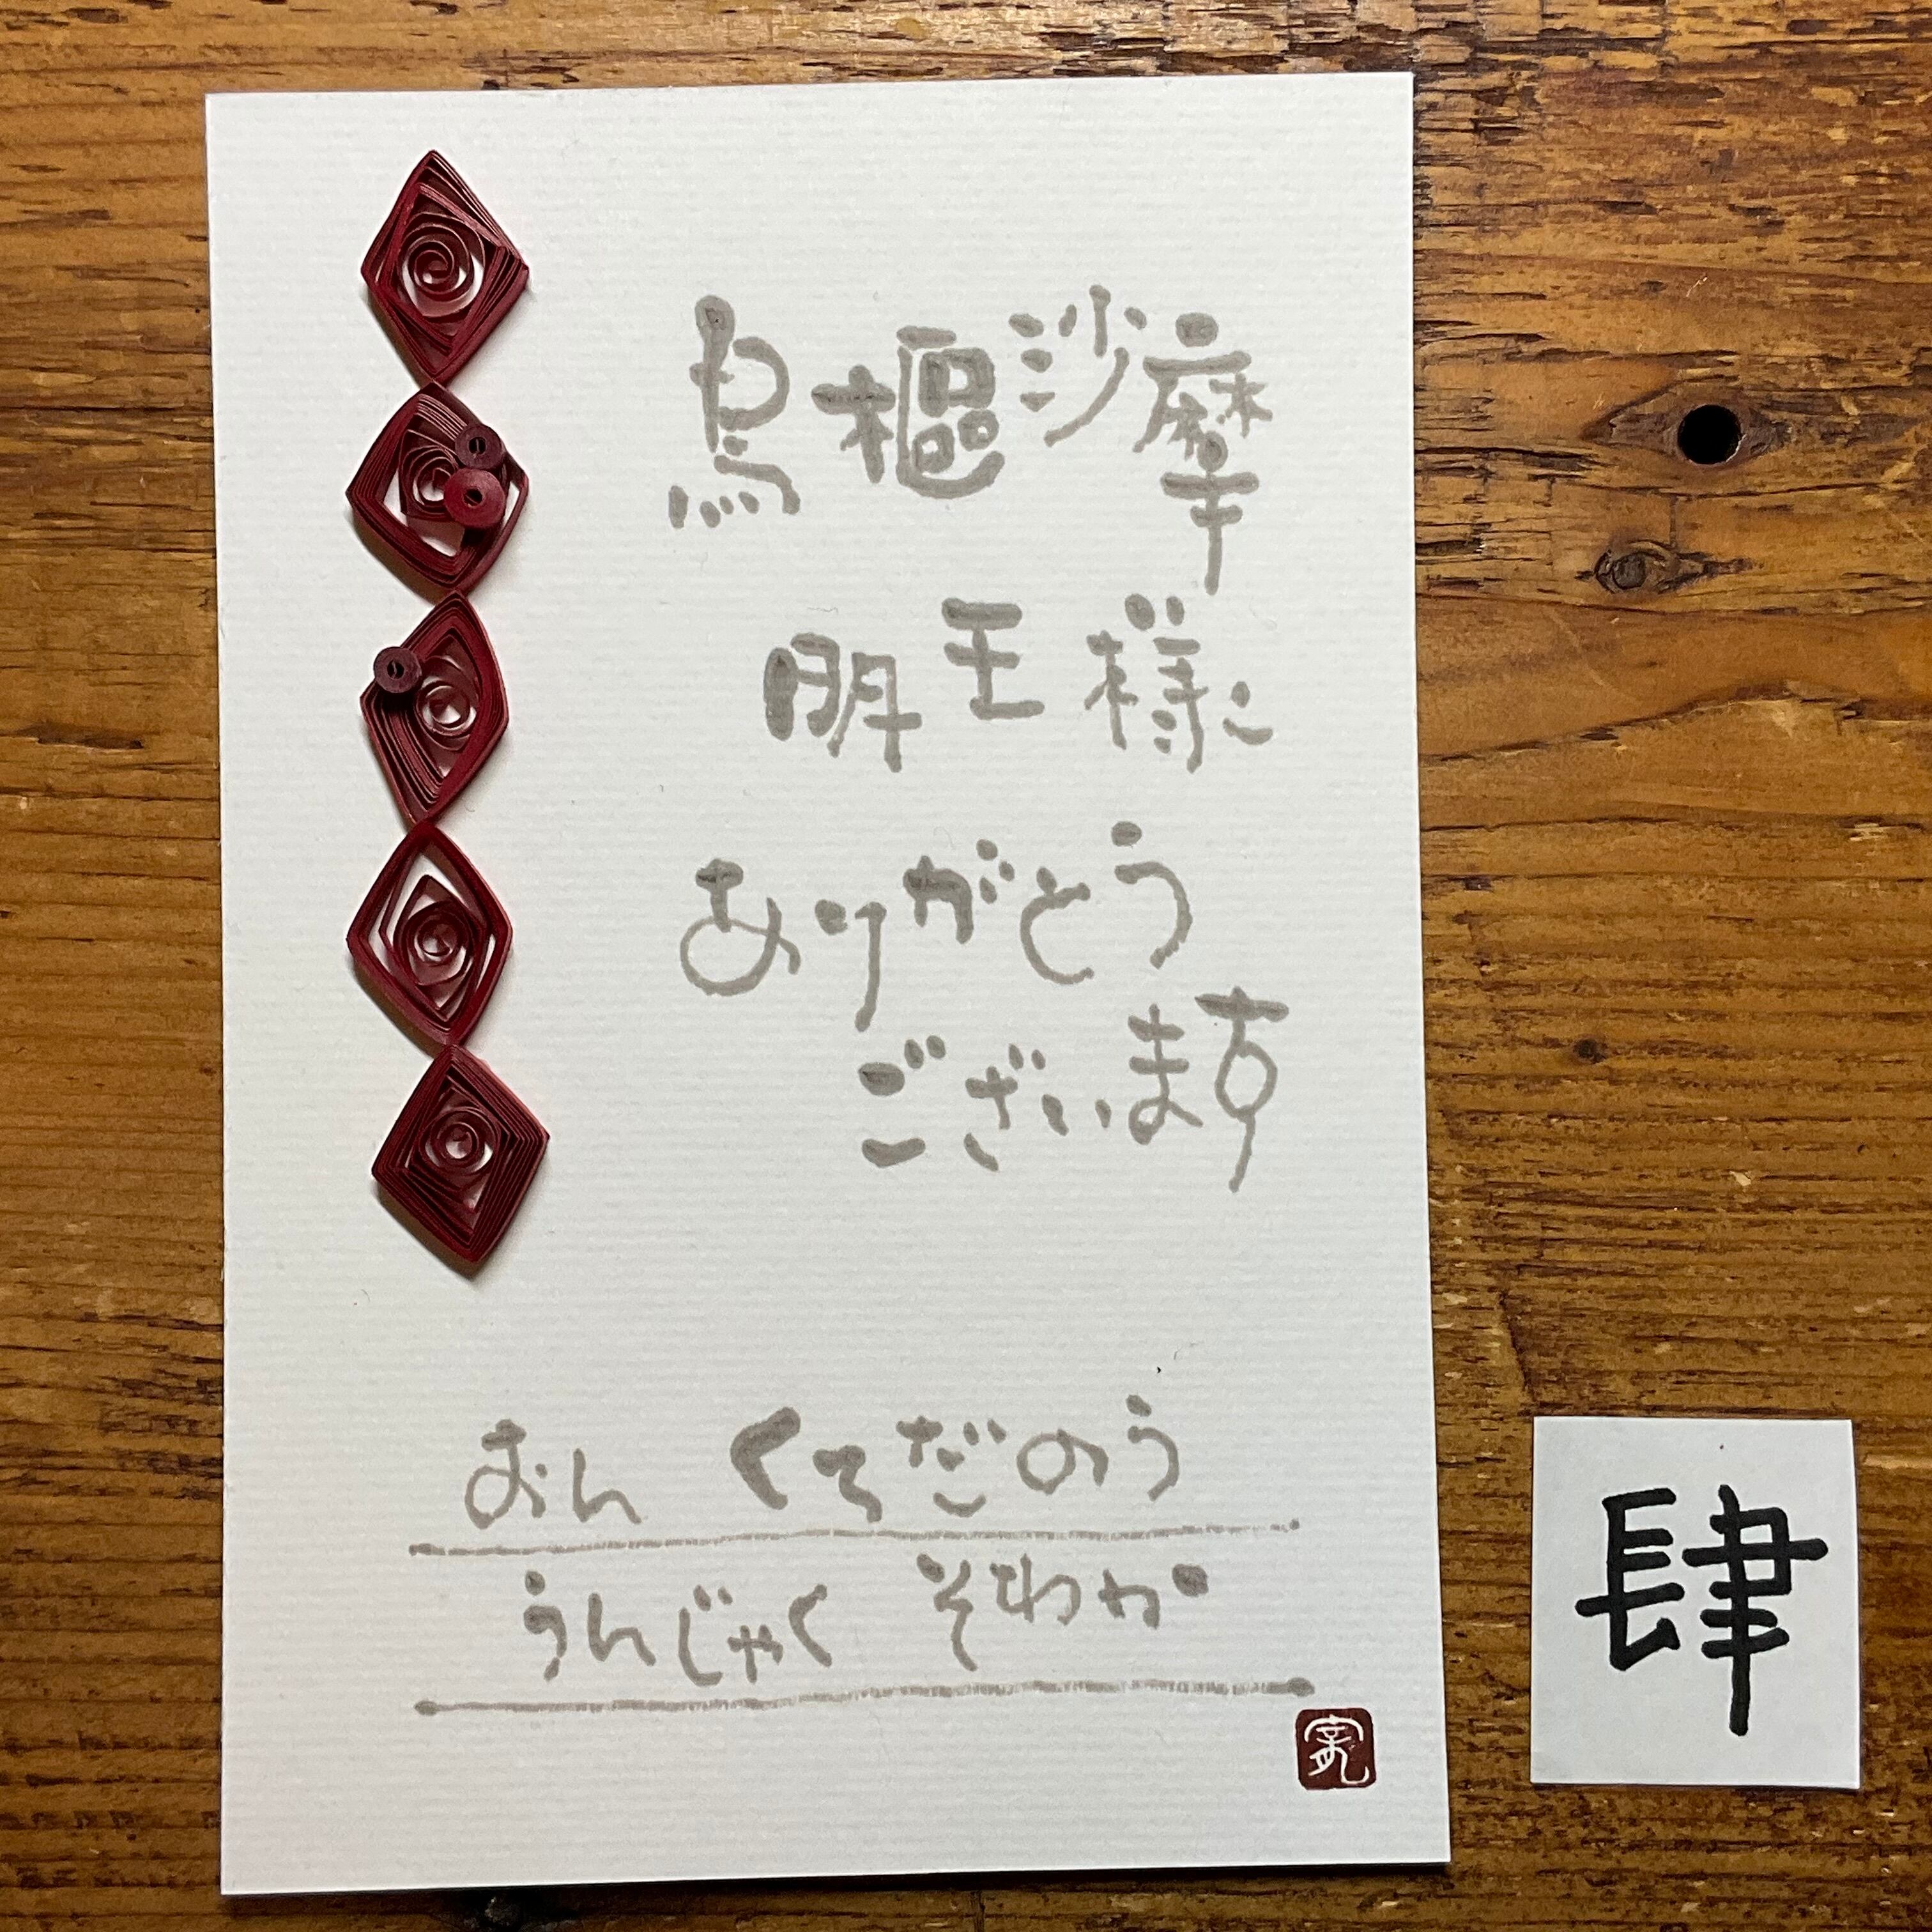 烏樞沙摩
明王様
ありがとう
ございます
おん くろだのう
うんじゃく そわか
肆